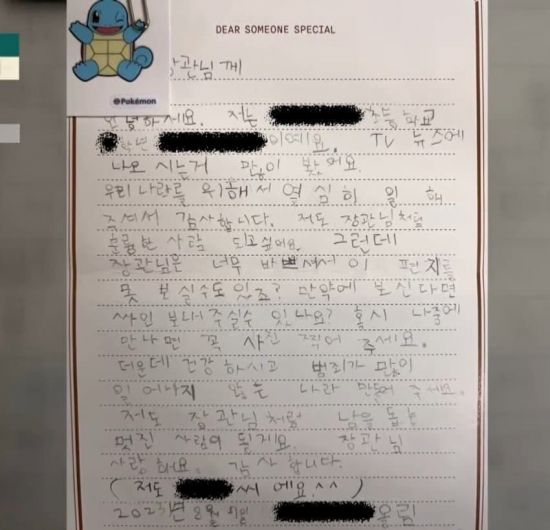 DEAR SOMEONE SPECIAL
Pokémon
장관님께
안녕하세요. 저는 초등학교
학년 이예요. TV 뉴스에
나오시는거 많이 봤어요.
우리나라를 위해서 열심히 일해
주셔서 감사합니다. 저도 장관님처럼
훌륭한 사람 되고싶어요. 그런데
장관님은 너무 바쁘셔서 이 편지를
못 보실수도 있죠? 만약에 보신다면
싸인 보내주실수 있나요? 혹시 나중에
만나면 꼭 사진 찍어 주세요.
더운데 건강하시고 범죄가 많이
일어나지 않는 나라 만들어 주세요.
저도 장관님처럼 남을 돕는
멋진 사람이 될게요. 장관님
사랑해요. 감사합니다.
(저도 씨에요^^)
2023년 8월 7일 올림